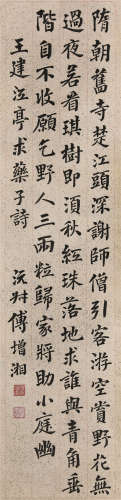 隋朝舊寺楚江頭深謝師僧引客游空賞野花無
過夜若看琪樹即須秋紅珠落地求誰與青角垂
階自不收願乞野人三兩粒歸家將助小庭幽
王建江亭求藥子詩
沅叔傅增湘